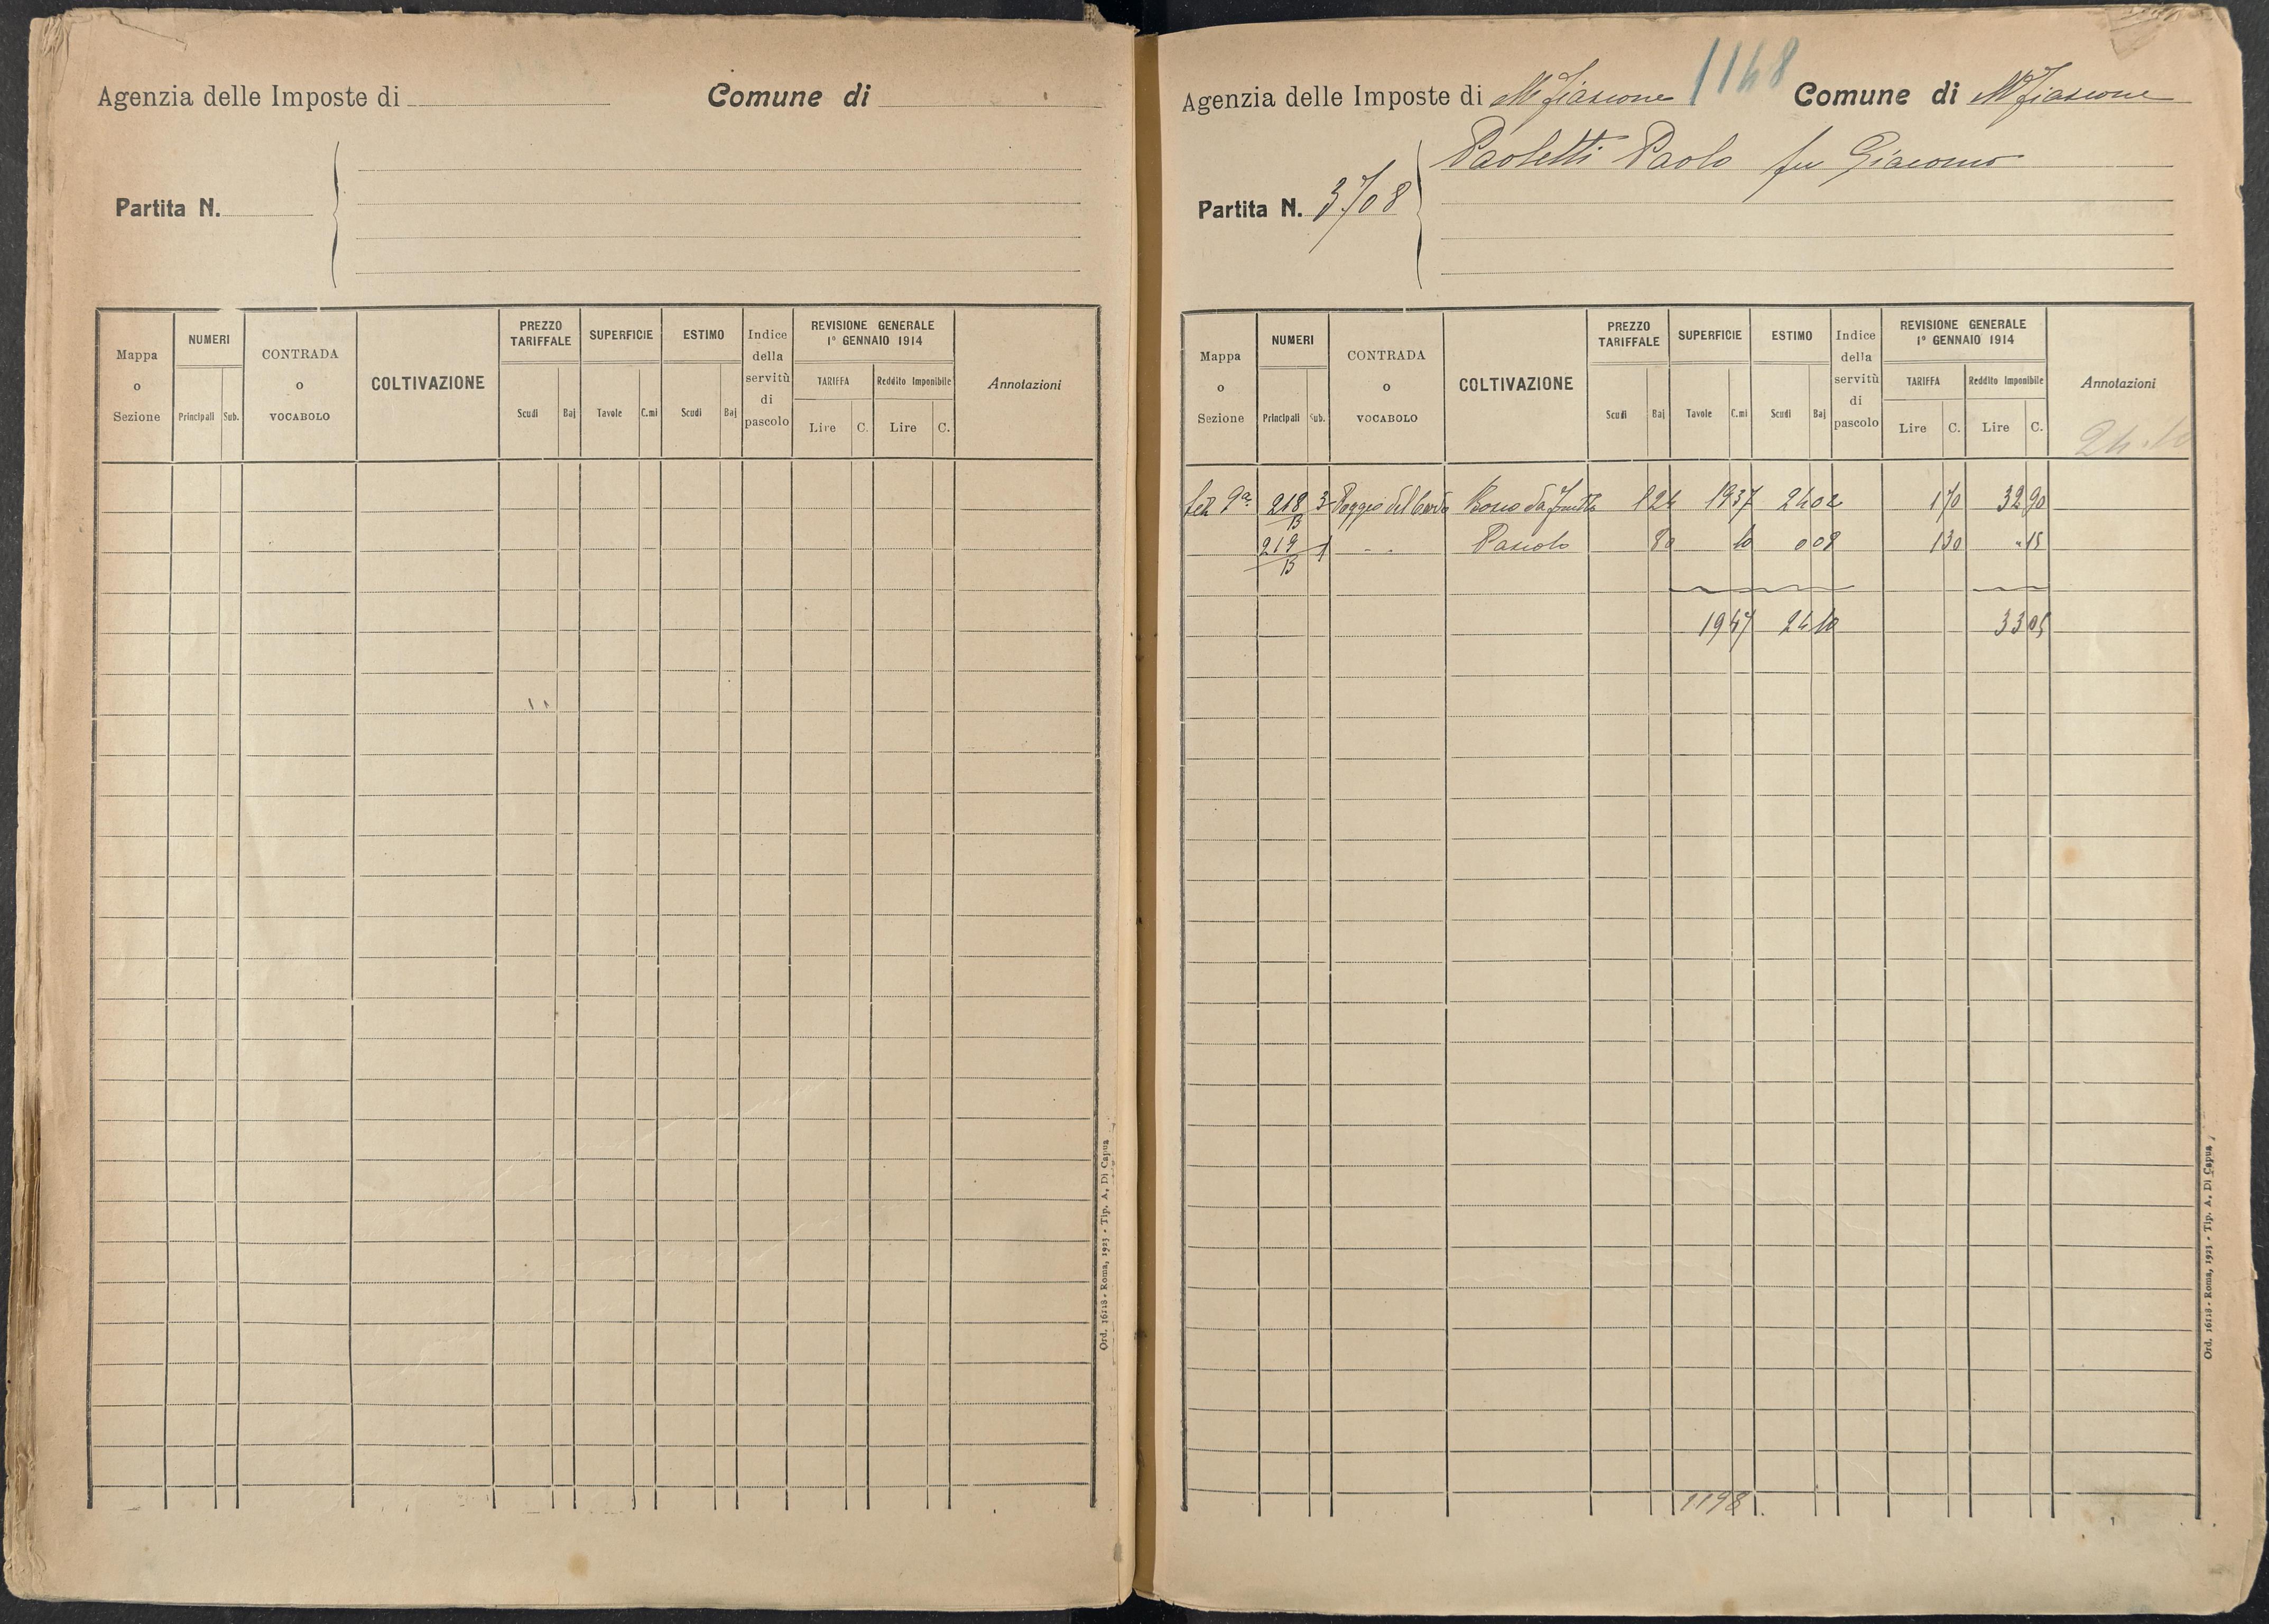 Agenzia delle Imposte di
Comune di
Partita N.
Mappa o Sezione
NUMERI
Principali Sub.
CONTRADA o VOCABOLO
COLTIVAZIONE
PREZZO TARIFFALE
Scudi Baj
SUPERFICIE
Tavole C.mi
ESTIMO
Scudi Baj
Indice della servitù di pascolo
REVISIONE GENERALE
1° GENNAIO 1914
TARIFFA Reddito Imponibile
Lire C. Lire C.
Annotazioni
Ord. 16118 - Roma, 1923 - Tip. A. Di Capua
1148
Agenzia delle Imposte di M Fiascone Comune di M Fiascone
Paoletti Paolo fu Giacomo
Partita N. 3708
Mappa o Sezione
NUMERI
Principali Sub.
CONTRADA o VOCABOLO
COLTIVAZIONE
PREZZO TARIFFALE
Scudi Baj
SUPERFICIE
Tavole C.mi
ESTIMO
Scudi Baj
Indice della servitù di pascolo
REVISIONE GENERALE
1° GENNAIO 1914
TARIFFA Reddito Imponibile
Lire C. Lire C.
Annotazioni
24.10
Sez 9a 218 3 Poggio del Bosco da frutto 1 24 19 37 24 02 1 70 32 90
219 1 - - Pascolo 80 10 0 08 1 30 " 15
19 47 24 10 33 05
1198
Ord. 16118 - Roma, 1923 - Tip. A. Di Capua